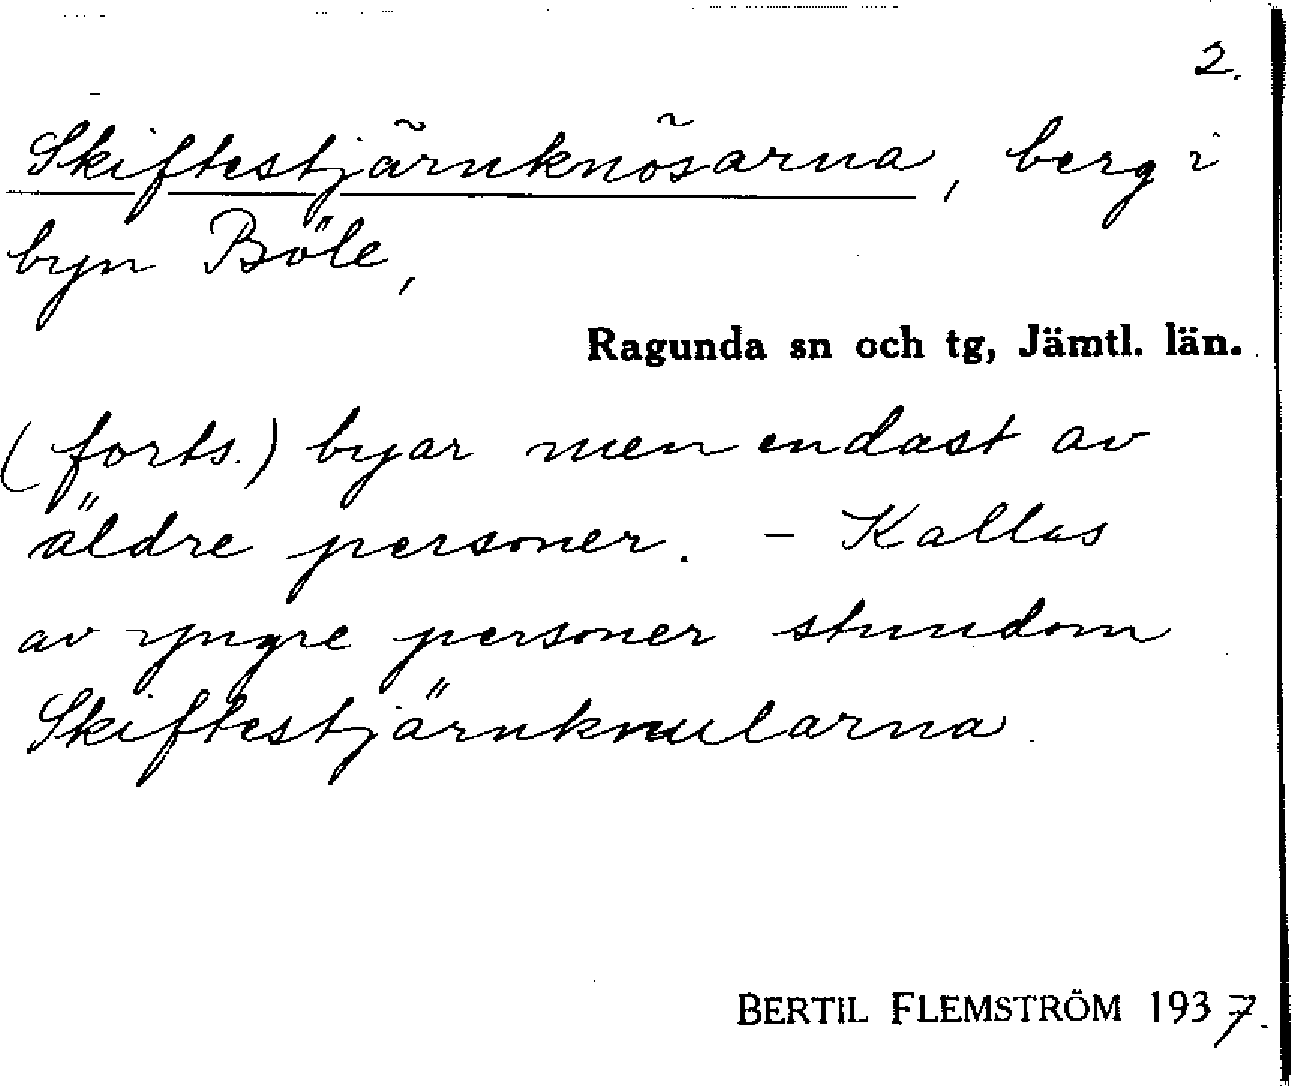 2.
Skiftestjärnknösarna, berg i
byn Böle,
Ragunda sn och tg, Jämtl. län.
(forts.) byar men endast av
äldre personer. – Kallas
av yngre personer stundom
Skiftestjärnknularna.
BERTIL FLEMSTRÖM 1937.